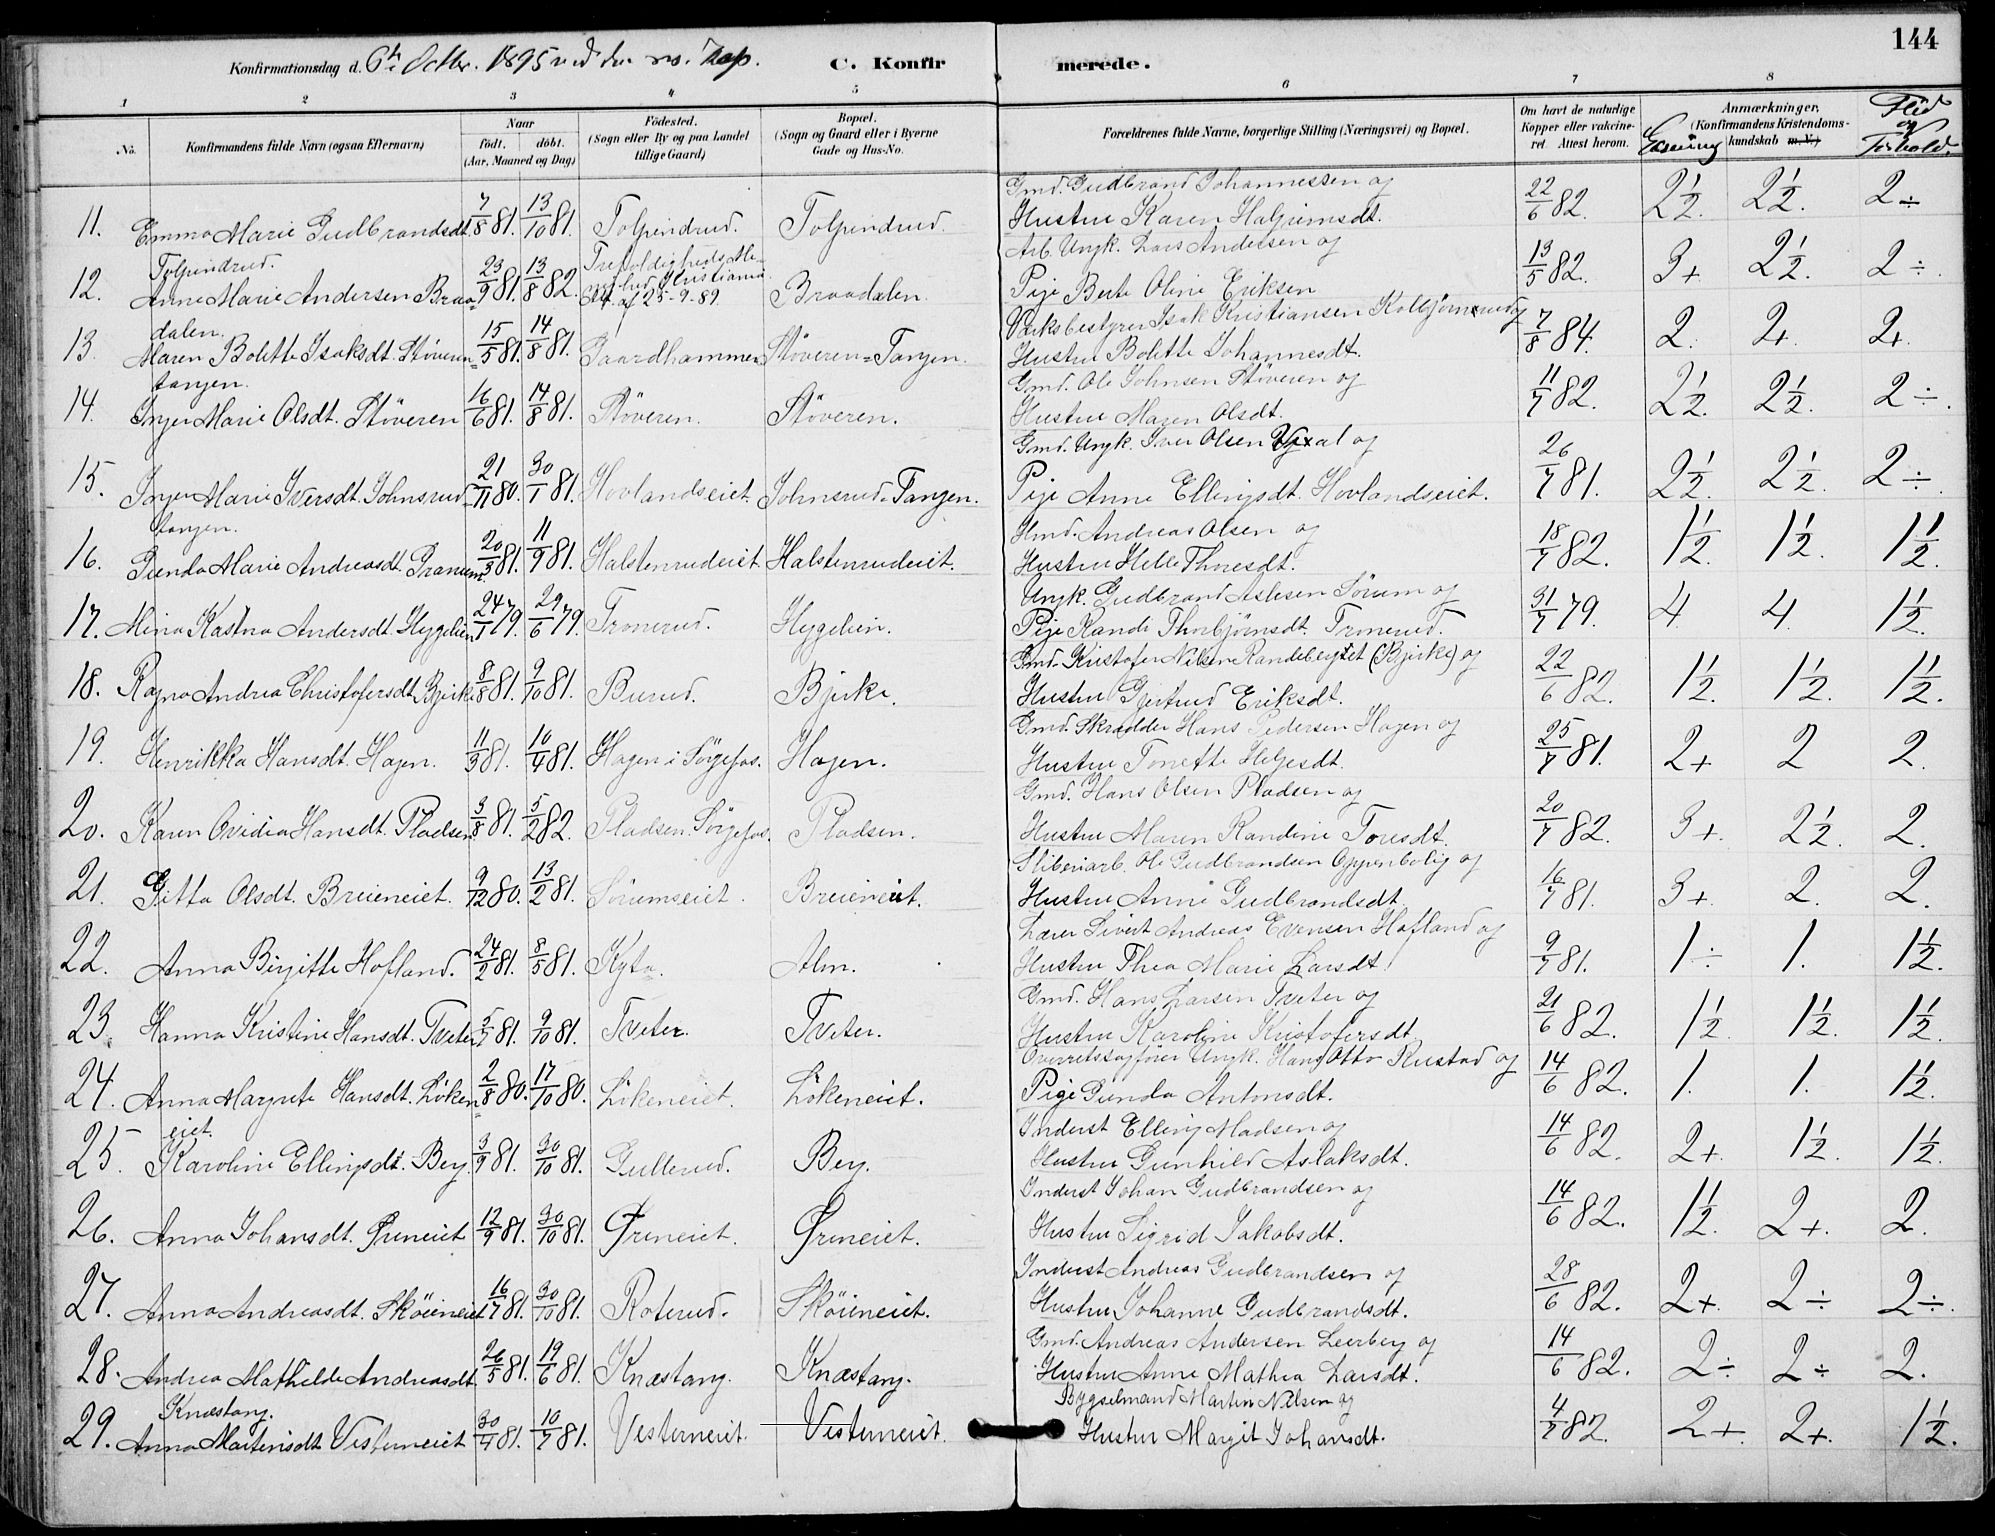 144
Konfirmationsdag d. 6te Octbr. 1895 C. Konfirmerede.
1 2 3 4 5 6 7 8
No. Konfirmandens fulde Navn (ogsaa Efternavn) Naar födt. döbt. (Aar, Maaned og Dag) Födested. (Sogn eller By og paa Landet tillige Gaard) Bopæl. (Sogn og Gaard eller i Byerne Gade og Hus-No. Forældrenes fulde Navne, borgerlige Stilling (Næringsvei) og Bopæl. Om havt de naturlige Kopper eller vakcineret. Attest herom. Læsning Anmærkninger. (Konfirmandens Kristendomskundskab m.V.) Flid og Forhold.
Gmd. Gudbrand Johannessen og
11. Emma Marie Gudbrandsdt. Tolpindrud. 7/8 81. 13/10 81. Tolpindrud. Tolpindrud. Hustru Karen Halgrimsdt. 22/6 82. 2 1/2. 2 1/2. 2 ÷
Arb. Ungk. Lars Andersen og
12. Anne Marie Andersen Braadalen. 23/9 81. 13/8 82. Trefoldigheds Menighed Kristiania Att. af 25-9-89. Braadalen. Pige Berte Oline Eriksen 13/5 82. 3+ 2 1/2. 2 ÷.
Værksbestyrer Isak Kristiansen Kolbjørnsrud og
13. Maren Bolette Isaksdt. Støverentangen. 15/5 81. 14/8 81. Gaardhammer Støveren=Tangen. Hustru Bolette Johannesdt. 7/8 84. 2. 2+. 2+.
Gmd. Ole Johnsen Støveren og
14. Inger Marie Olsdt. Støveren 16/6 81. 14/8 81. Støveren. Støveren. Hustru Maren Olsdt. 11/7 82. 2 1/2. 2 1/2. 2 ÷.
Gmd. Ungk. Iver Olsen og
15. Inger Marie Iversdt. Johnsrudtangen. 21/11 80. 30/1 81. Hovlandseiet. Johnsrud=Tangen. Pige Anne Ellingsdt. Hovlandseiet. 26/7 81. 2 1/2. 2 1/2. 2 ÷.
Hmd. Andreas Olsen og
16. Gunda Marie Andreasdt. Pranum. 20/3 81. 11/9 81. Halstenrudeiet. Halstenrudeiet. Hustru Helle Thoresdt. 18/7 82. 1 1/2. 1 1/2. 1 1/2.
Ungk. Gudbrand Aslesen Sörum og
17. Mina Kastna Andersdt. Hyggelien. 24/1 79. 29/6 79. Tronerud. Hyggelien. Pige Randi Thorbjørnsdt. Tronerud. 31/7 79. 4. 4. 1 1/2.
Gmd. Kristofer Nilsen (Bjirke) og
18. Ragna Andrea Christofersdt. Bjirke. 8/8 81. 9/10 81. Burud. Bjirke. Hustru Gjertrud Eriksdt. 22/6 82. 1 1/2. 1 1/2. 1 1/2.
Gmd. Skrædder Hans Pedersen Hagen og
19. Henrikka Hansdt. Hagen. 11/3 81. 10/4 81. Hagen i Sögefos. Hagen. Hustru Tonette Helgesdt. 25/7 81. 2+ 2 2.
Gmd. Hans Olsen Pladsen og
20. Karen Ovidia Hansdt. Pladsen 3/8 81. 5/2 82. Pladsen. Sörgefos. Pladsen. Hustru Maren Randine Toresdt. 20/7 82. 3+. 2 1/2. 2.
Sliberiarb. Ole Gudbrandsen Oppenbolig og
21. Gitta Olsdt. Breieneiet. 9/12 80. 13/2 81. Sörumseiet. Breieneiet. Hustru Anne Gudbrandsdt. 16/7 81. 3+. 2. 2.
Lærer Sivert Andreas Evensen Hofland og
22. Anna Birgitte Hofland. 24/2 81. 8/5 81. Kyta. Alm. Hustru Thea Marie Larsdt. 9/7 81. 1 ÷ 1. 1 1/2.
Gmd. Hans Larsen Tveter og
23. Hanna Kristine Hansdt. Tveter 5/7 81. 9/10 81. Tveter. Tveter. Hustru Karoline Kristofersdt. 21/6 82. 1 1/2. 1 1/2. 1 1/2.
Overretssagfører Ungk. Hans Otto Rustad og
24. Anna Margrete Hansdt. Lökeneiet. 2/8 80. 17/10 80. Lökeneiet. Lökeneiet. Pige Gunda Antonsdt. 14/6 82. 1. 1. 1 1/2.
Inderst Elling Madsen og
25. Karoline Ellingsdt. Berg. 3/9 81. 30/10 81. Gullerud. Berg. Hustru Gunhild Aslaksdt. 14/6 82. 2+. 1 1/2. 1 1/2.
Inderst Johan Gudbrandsen og
26. Anna Johansdt. Øreneiet 12/9 81. 30/10 81. Øreneiet. Øreneiet. Hustru Sigrid Jakobsdt. 14/6 82. 1 1/2. 2+. 2.
Inderst Andreas Gudbrandsen og
27. Anna Andreasdt. Sköieneiet 16/7 81. 30/10 81. Roterud. Sköieneiet. Hustru Johanne Gudbrandsdt. 28/6 82. 2+. 2 ÷ 2 ÷.
Gmd. Andreas Andersen Leerberg og
28. Andrea Mathilde Andreasdt. Knæstang. 26/5 81. 19/6 81. Knæstang. Knæstang. Hustru Anne Mathea Larsdt. 14/6 82. 2 ÷ 2 ÷ 2.
Bygselmand Martin Nilsen og
29. Anna Martinsdt. Vesterneiet 30/4 81. 10/7 81. Vesterneiet. Vesterneiet. Hustru Margit Johansdt. 4/7 82. 2+. 2+. 1 1/2.